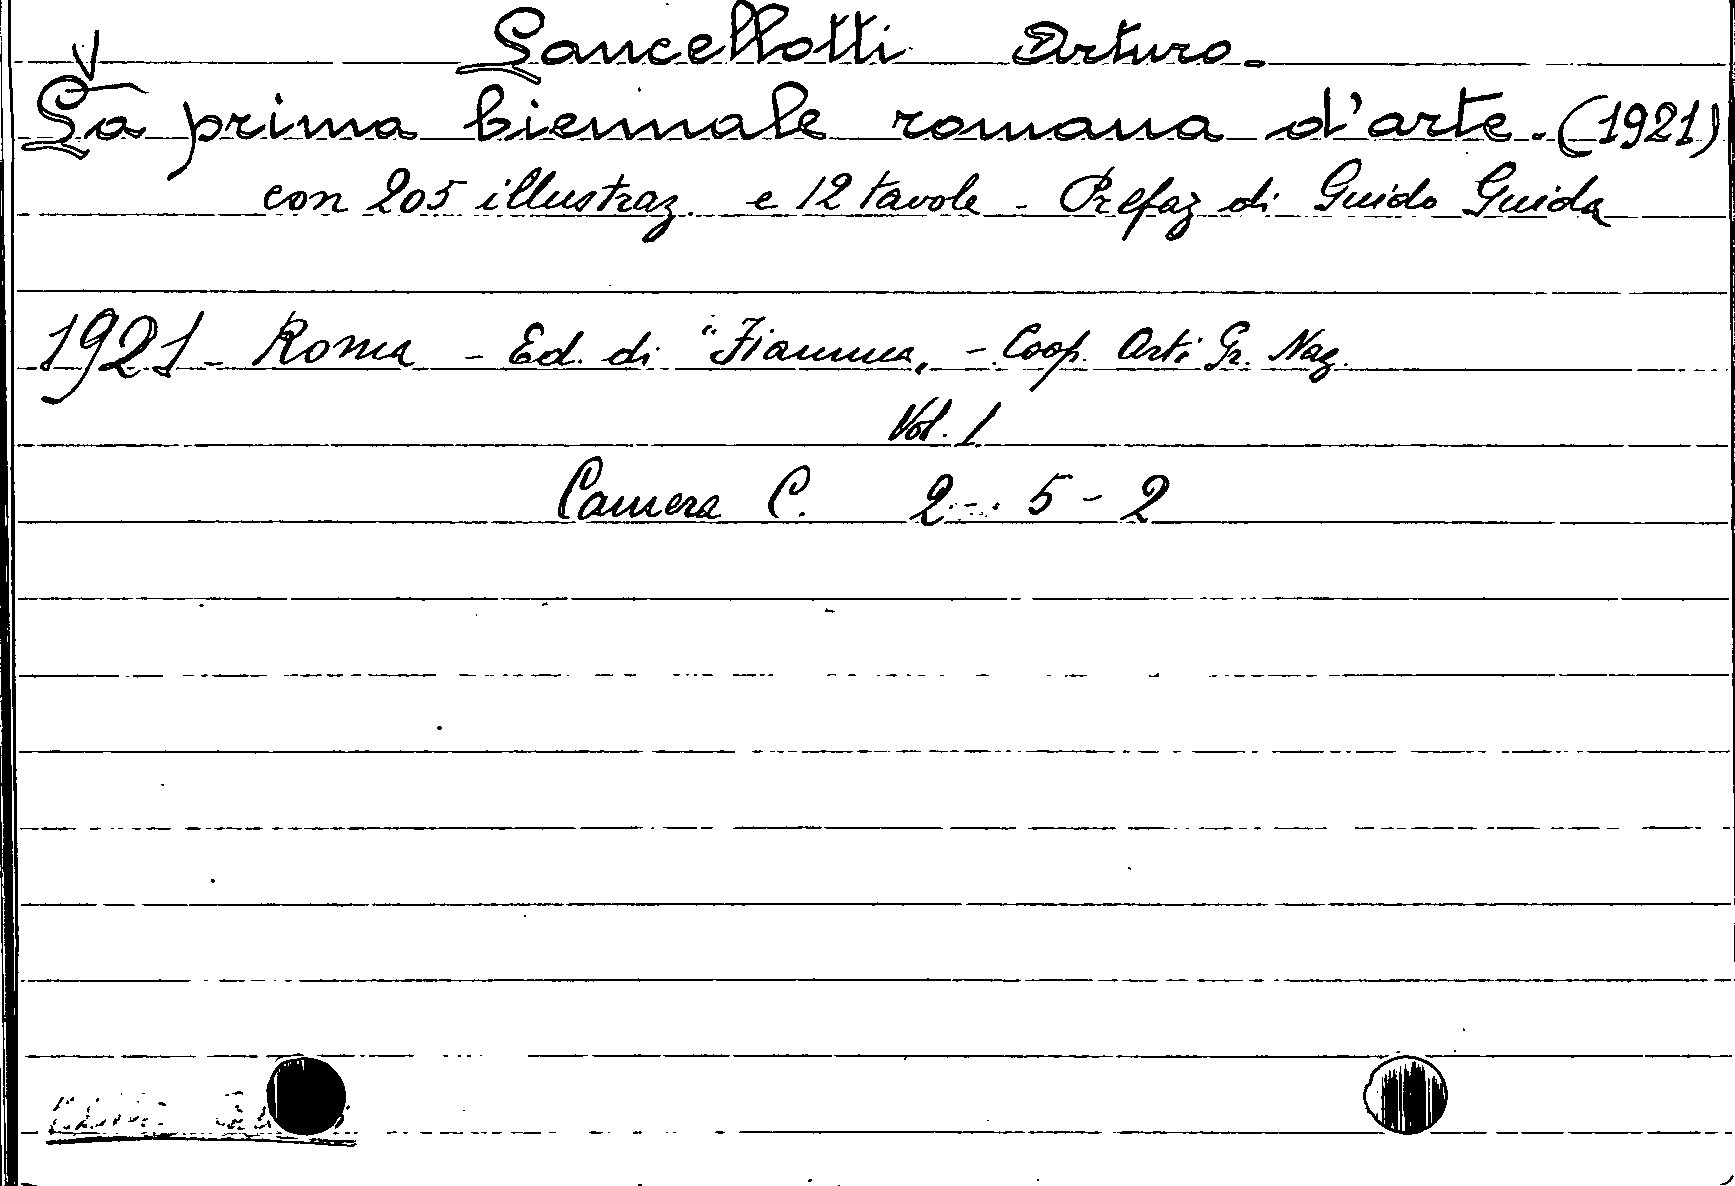 Lancellotti Arturo.
V
La prima biennale romana d'arte. (1921)
con 205 illustraz. e 12 tavole - Prefaz di Guido Guida
1921 - Roma - Ed. di "Fiamma„ - Coop. Arti Gr. Naz.
Vol. 1
Camera C. 2 - 5 - 2